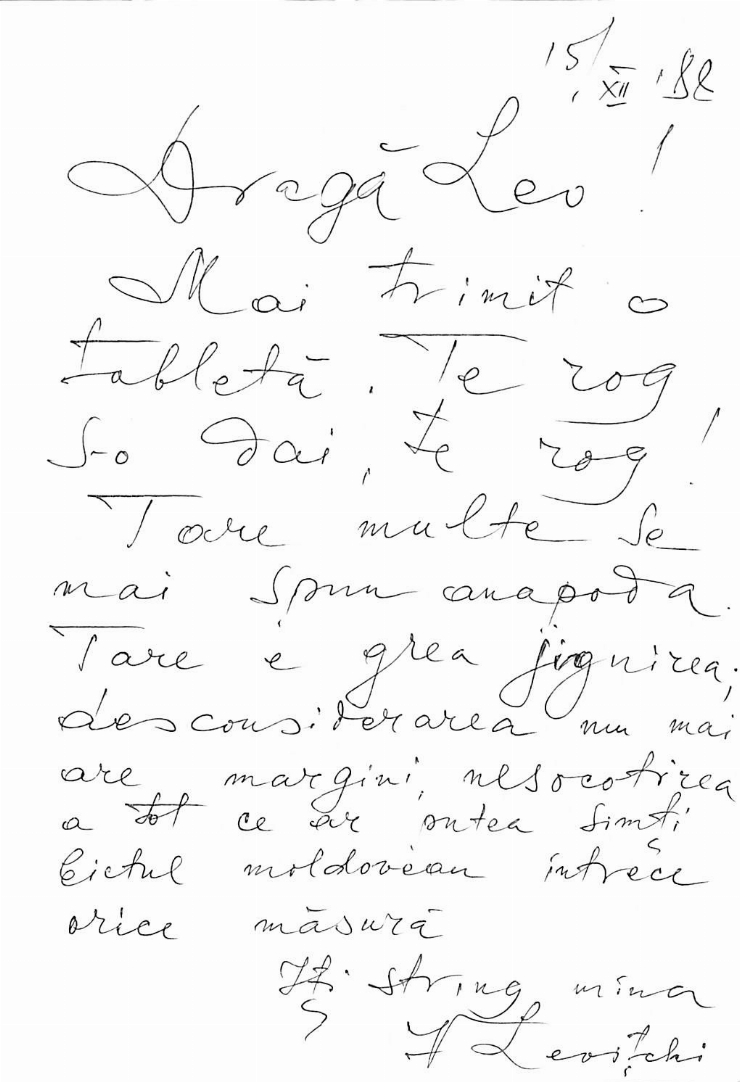 15/XII '88
Dragă Leo!
Mai trimit o
tabletă. Te rog
s-o dai, te rog!
Tare multe se
mai spun anapoda.
Tare e grea jignirea;
desconsiderarea nu mai
are margini, nesocotirea
a tot ce ar putea simți
bietul moldovean întrece
orice măsură
Iți string mina
Levițchi